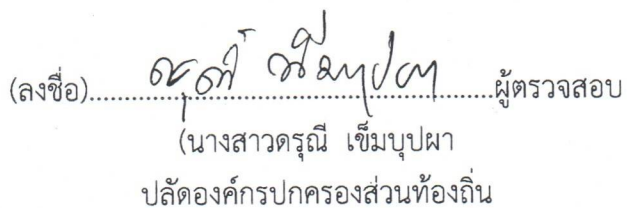 (ลงชื่อ)..................................................ผู้ตรวจสอบ
(นางสาวดรุณี เข็มบุปผา
ปลัดองค์กรปกครองส่วนท้องถิ่น